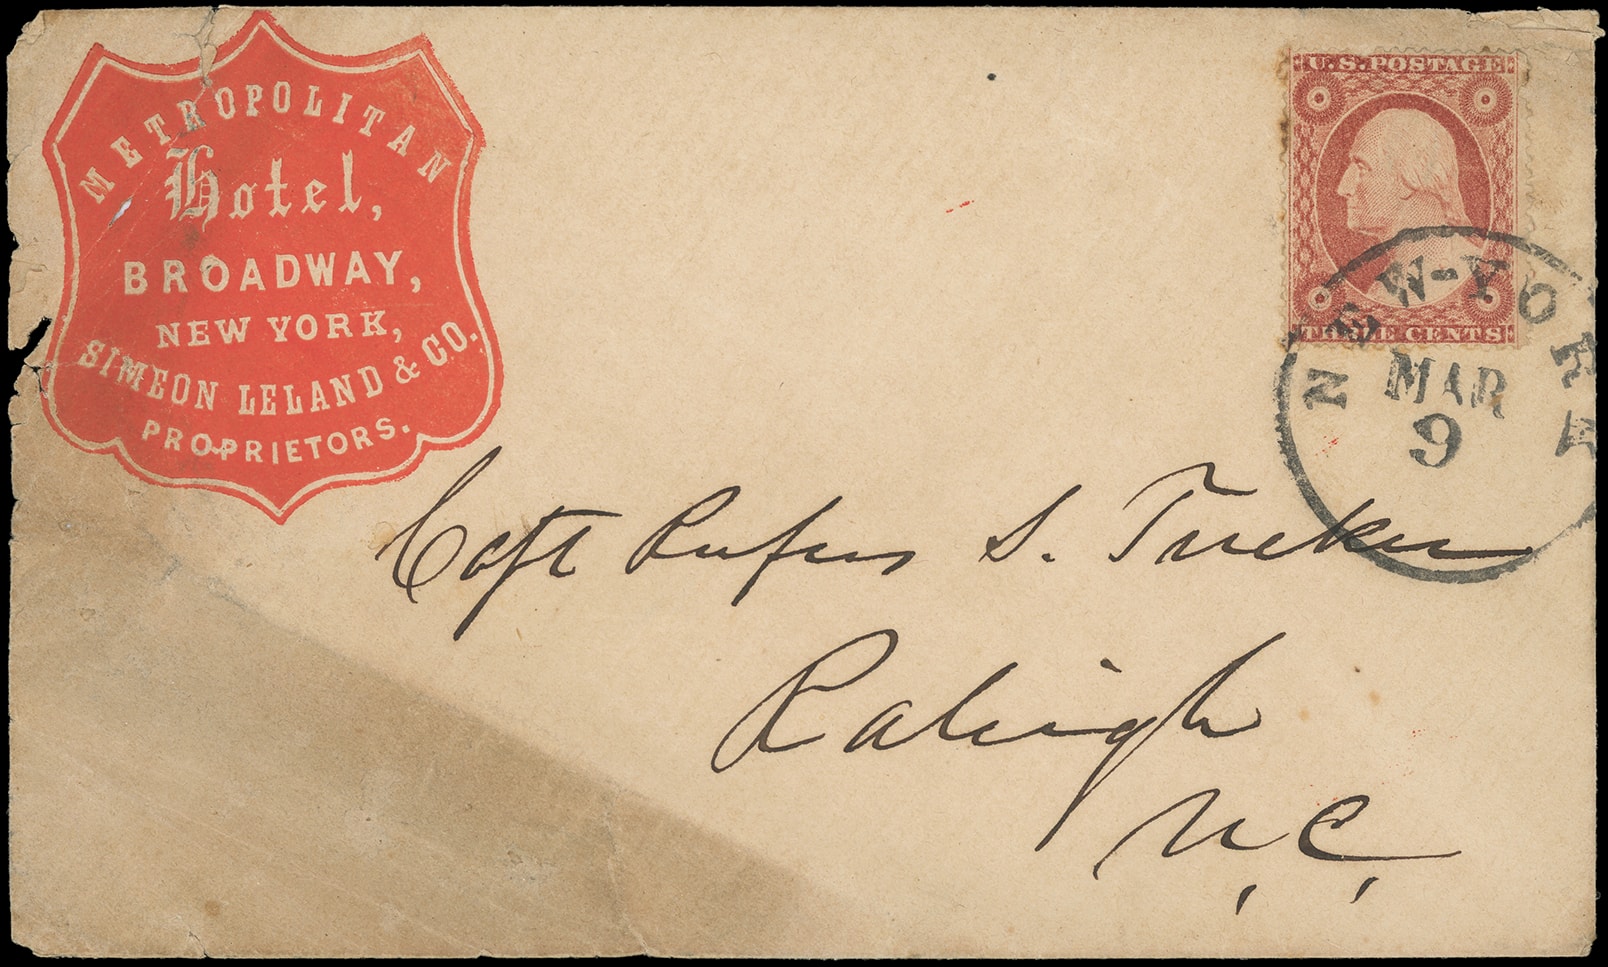 METROPOLITAN
Hotel,
BROADWAY,
NEW YORK,
SIMEON LELAND & CO.
PROPRIETORS.
U.S. POSTAGE
THREE CENTS
NEW-YORK
MAR
9
Capt Rufus S. Tucker
Raleigh
N.C.